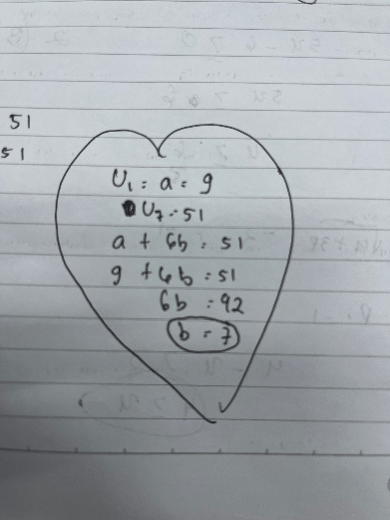 51
51
U₁ = a = 9
U₇ = 51
a + 6b = 51
9 + 6b = 51
6b = 92
b = 7